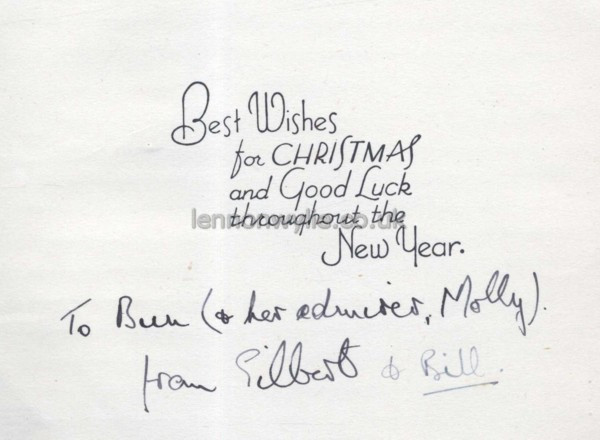 Best Wishes
for CHRISTMAS
and Good Luck
throughout the
lennonwylie.co.uk
New Year.
To Bun (& her admirer, Molly).
from Gilbert & Bill.